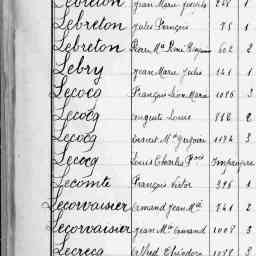 Lebreton Jean Marie 1
Lebreton Jules François 75 1
Lebreton Jean Mie René 602 2
Lebry Jean Marie Jules 141 1
Lecocq François Léon Marie 1096 3
Lecocq Auguste Louis 2
Lecocq Ernest Mie 1174 3
Lecocq Louis Charles Fois
Lecomte François Victor 396 1
Lecorvaisier Armand Jean Mie 741 2
Lecorvaisier Jean Mie Armand 1008 3
Lecrecq Alfred Théodore 3